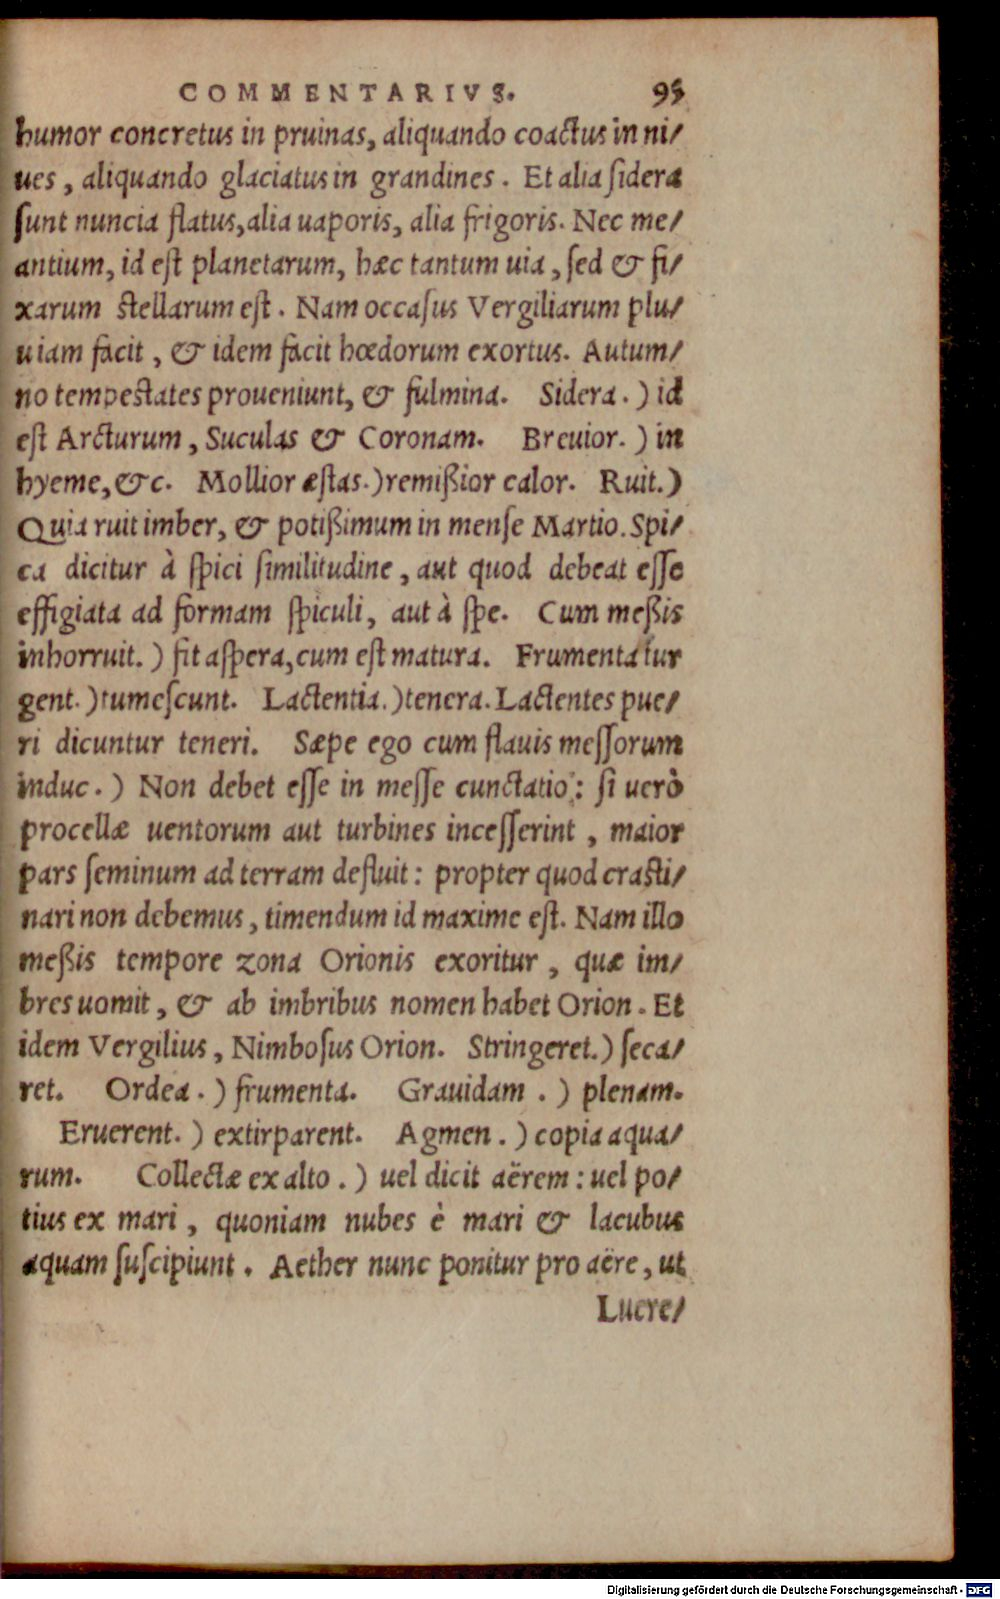 COMMENTARIVS. 95
humor concretus in pruinas, aliquando coactus in ni/
ues, aliquando glaciatus in grandines. Et alia sidera
sunt nuncia flatus, alia uaporis, alia frigoris. Nec me/
antium, id est planetarum, hæc tantum uia, sed & fi/
xarum stellarum est. Nam occasus Vergiliarum plu/
uiam facit, & idem facit hœdorum exortus. Autum/
no tempestates proueniunt, & fulmina. Sidera.) id
est Arcturum, Suculas & Coronam. Breuior.) in
hyeme, &c. Mollior æstas.) remißior calor. Ruit.)
Quia ruit imber, & potißimum in mense Martio. Spi/
ca dicitur à spici similitudine, aut quod debeat esse
effigiata ad formam spiculi, aut à spe. Cum meßis
inhorruit.) fit aspera, cum est matura. Frumenta tur
gent.) tumescunt. Lactentia.) tenera. Lactentes pue/
ri dicuntur teneri. Sæpe ego cum flauis messorum
induc.) Non debet esse in messe cunctatio: si uerò
procellæ uentorum aut turbines incesserint, maior
pars seminum ad terram defluit: propter quod crasti/
nari non debemus, timendum id maxime est. Nam illo
meßis tempore zona Orionis exoritur, quæ im/
bres uomit, & ab imbribus nomen habet Orion. Et
idem Vergilius, Nimbosus Orion. Stringeret.) seca/
ret. Ordea.) frumenta. Grauidam.) plenam.
Eruerent.) extirparent. Agmen.) copia aqua/
rum. Collectæ ex alto.) uel dicit aërem: uel po/
tius ex mari, quoniam nubes è mari & lacubus
aquam suscipiunt. Aether nunc ponitur pro aëre, ut
Lucre/
Digitalisierung gefördert durch die Deutsche Forschungsgemeinschaft - DFG